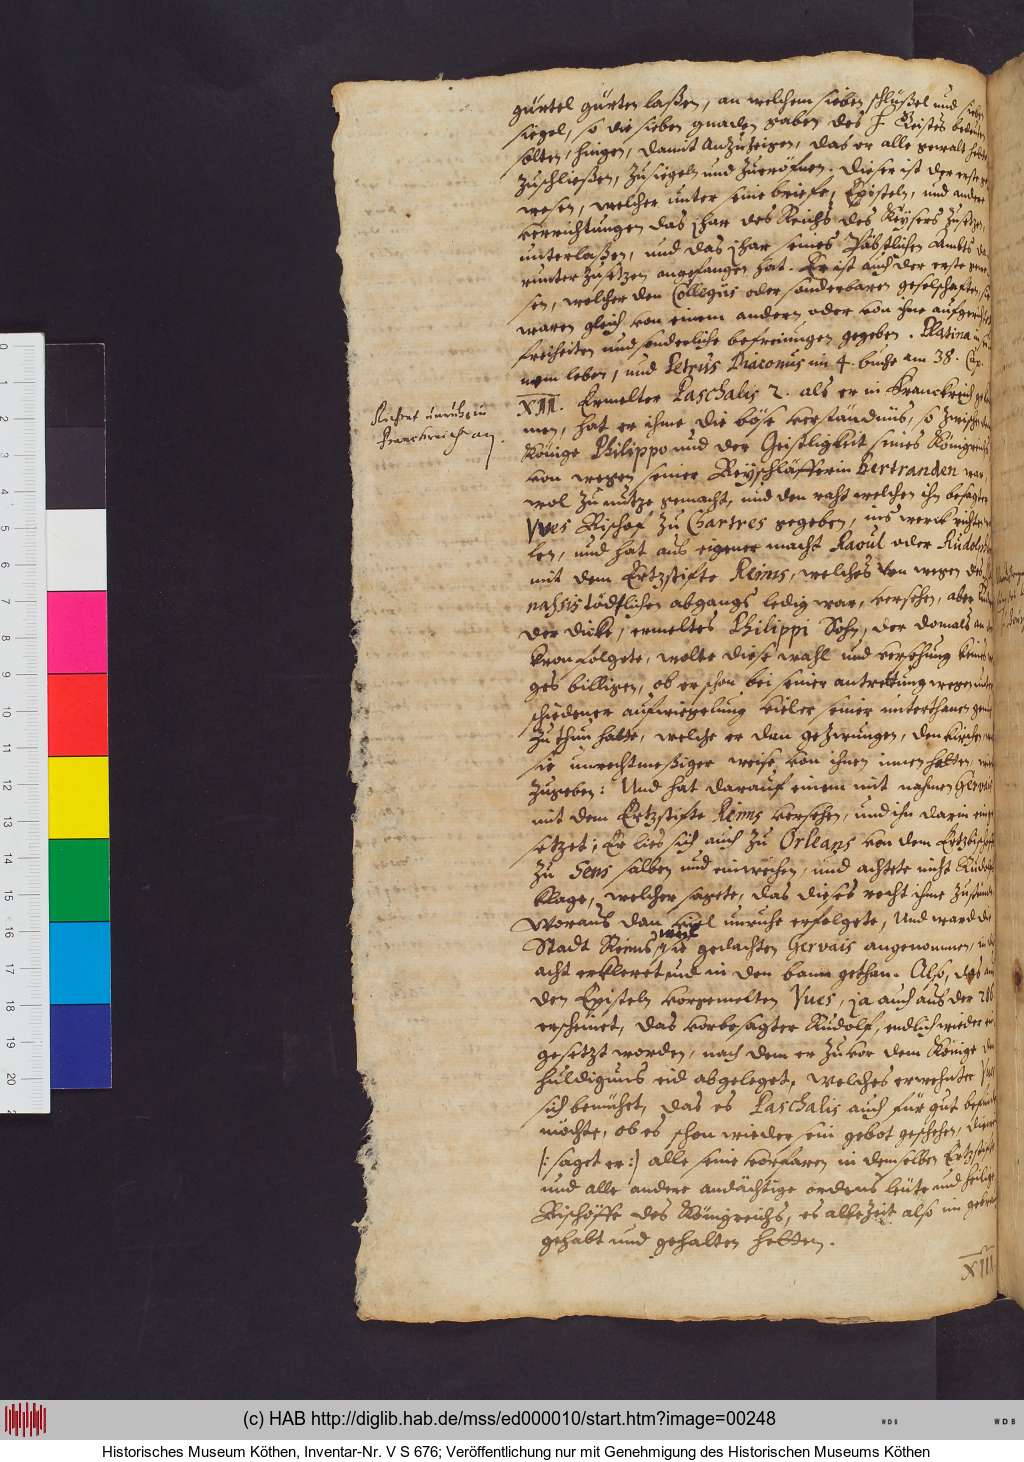 gürtel gürten laßen, an welchem sieben schlüßel und sieben
siegel, so die sieben gnaden gaben des H. Geistes bedeuten
solten, hingen, damit anzuzeigen, das er alle gewalt hette
zuschließen, zusiegeln und zueröfnen. Dieser ist der erste ge-
wesen, welcher unter seine briefe, Episteln, und andere
verrichtungen das Jhar des Reichs des Keysers zusetzen,
unterlaßen, und das Jhar seines Päbstlichen Ambts da-
runter zusetzen angefangen hat. Er ist auch der erste gewe-
sen, welcher den Collegiis oder sonderbaren geselschaften, sie
waren gleich von einem andern oder von ihme aufgerichtet
freiheiten und sonderliche befreiungen gegeben. Platina in sei-
nem leben, und Petrus Diaconus im 4. buche am 38. Cap.
XII. Ermelter Paschalis 2. als er in Franckreich
men, hat er ihme die böse verständnüs, so zwischen
Könige Philippo und der Geistligkeit seines Königreichs
von wegen seiner Beyschläfferin Bertranden war,
wol zu nutze gemacht, und den raht welchen ihm besagter
Yves Bischof zu Chartres gegeben, ins werck richten
len, und hat aus eigener macht Raoul oder Rudolphen
mit dem Ertzstifte Reims, welches von wegen des
nahsis tödtlichen abgangs ledig war, versehen, aber
der dicke, ermeltes Philippi Sohn, der domals an der
kron folgete, wolte diese wahl und versehung keines we-
ges billigen, ob er schon bei seiner antrettung wegen unter-
schiedener aufwiegelung vieler seiner unterthanen
zu thun hatte, welche er dan gezwungen, den kirchen
sie unrechtmeßiger weise von ihnen innen hatten, wie-
zugeben: Und hat darauf einem mit nahmen Gervais
mit dem Ertzstifte Reims versehen, und ihn darin einge-
setzet; Er lies sich auch zu Orleans von dem Ertzbischof
zu Sens salben und einweihen, und achtete nicht Rudolfs
klage, welcher sagete, das dieses recht ihme zustünde
Woraus dan viel unruhe erfolgete, Und ward die
Stadt Reims, weil sie gedachten Gervais angenommen, in die
acht erkleret und in den bann gethan. Also, das aus
den Episteln vorgemelten Yves, ja auch aus der 206
erscheinet, das vorbesagter Rudolf, endlich wieder ein-
gesetzt worden, nach dem er zuvor dem Könige den
huldigungs eid abgeleget, welches erwehnter Yves
sich bemühet, das es Paschalis auch für gut befinden
möchte, ob es schon wieder sein gebot geschehen, dieweil
(: saget er :) alle seine vorfaren in demselben Ertzstifte
und alle andere andächtige ordens leüte und heilige
Bischöffe des Königreichs, es allezeit also im gebrauch
gehabt und gehalten hetten.
XIII.
Richtet unruhe in
Franckreich an.
(c) HAB http://diglib.hab.de/mss/ed000010/start.htm?image=00248
WDB
WDB
Historisches Museum Köthen, Inventar-Nr. V S 676; Veröffentlichung nur mit Genehmigung des Historischen Museums Köthen